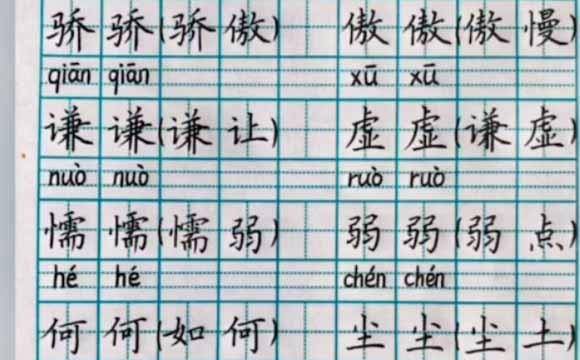 骄 骄(骄傲) 傲 傲(傲慢)
qiān qiān xū xū
谦 谦(谦让) 虚 虚(谦虚)
nuò nuò ruò ruò
懦 懦(懦弱) 弱 弱(弱点)
hé hé chén chén
何 何(如何) 尘 尘(尘土)